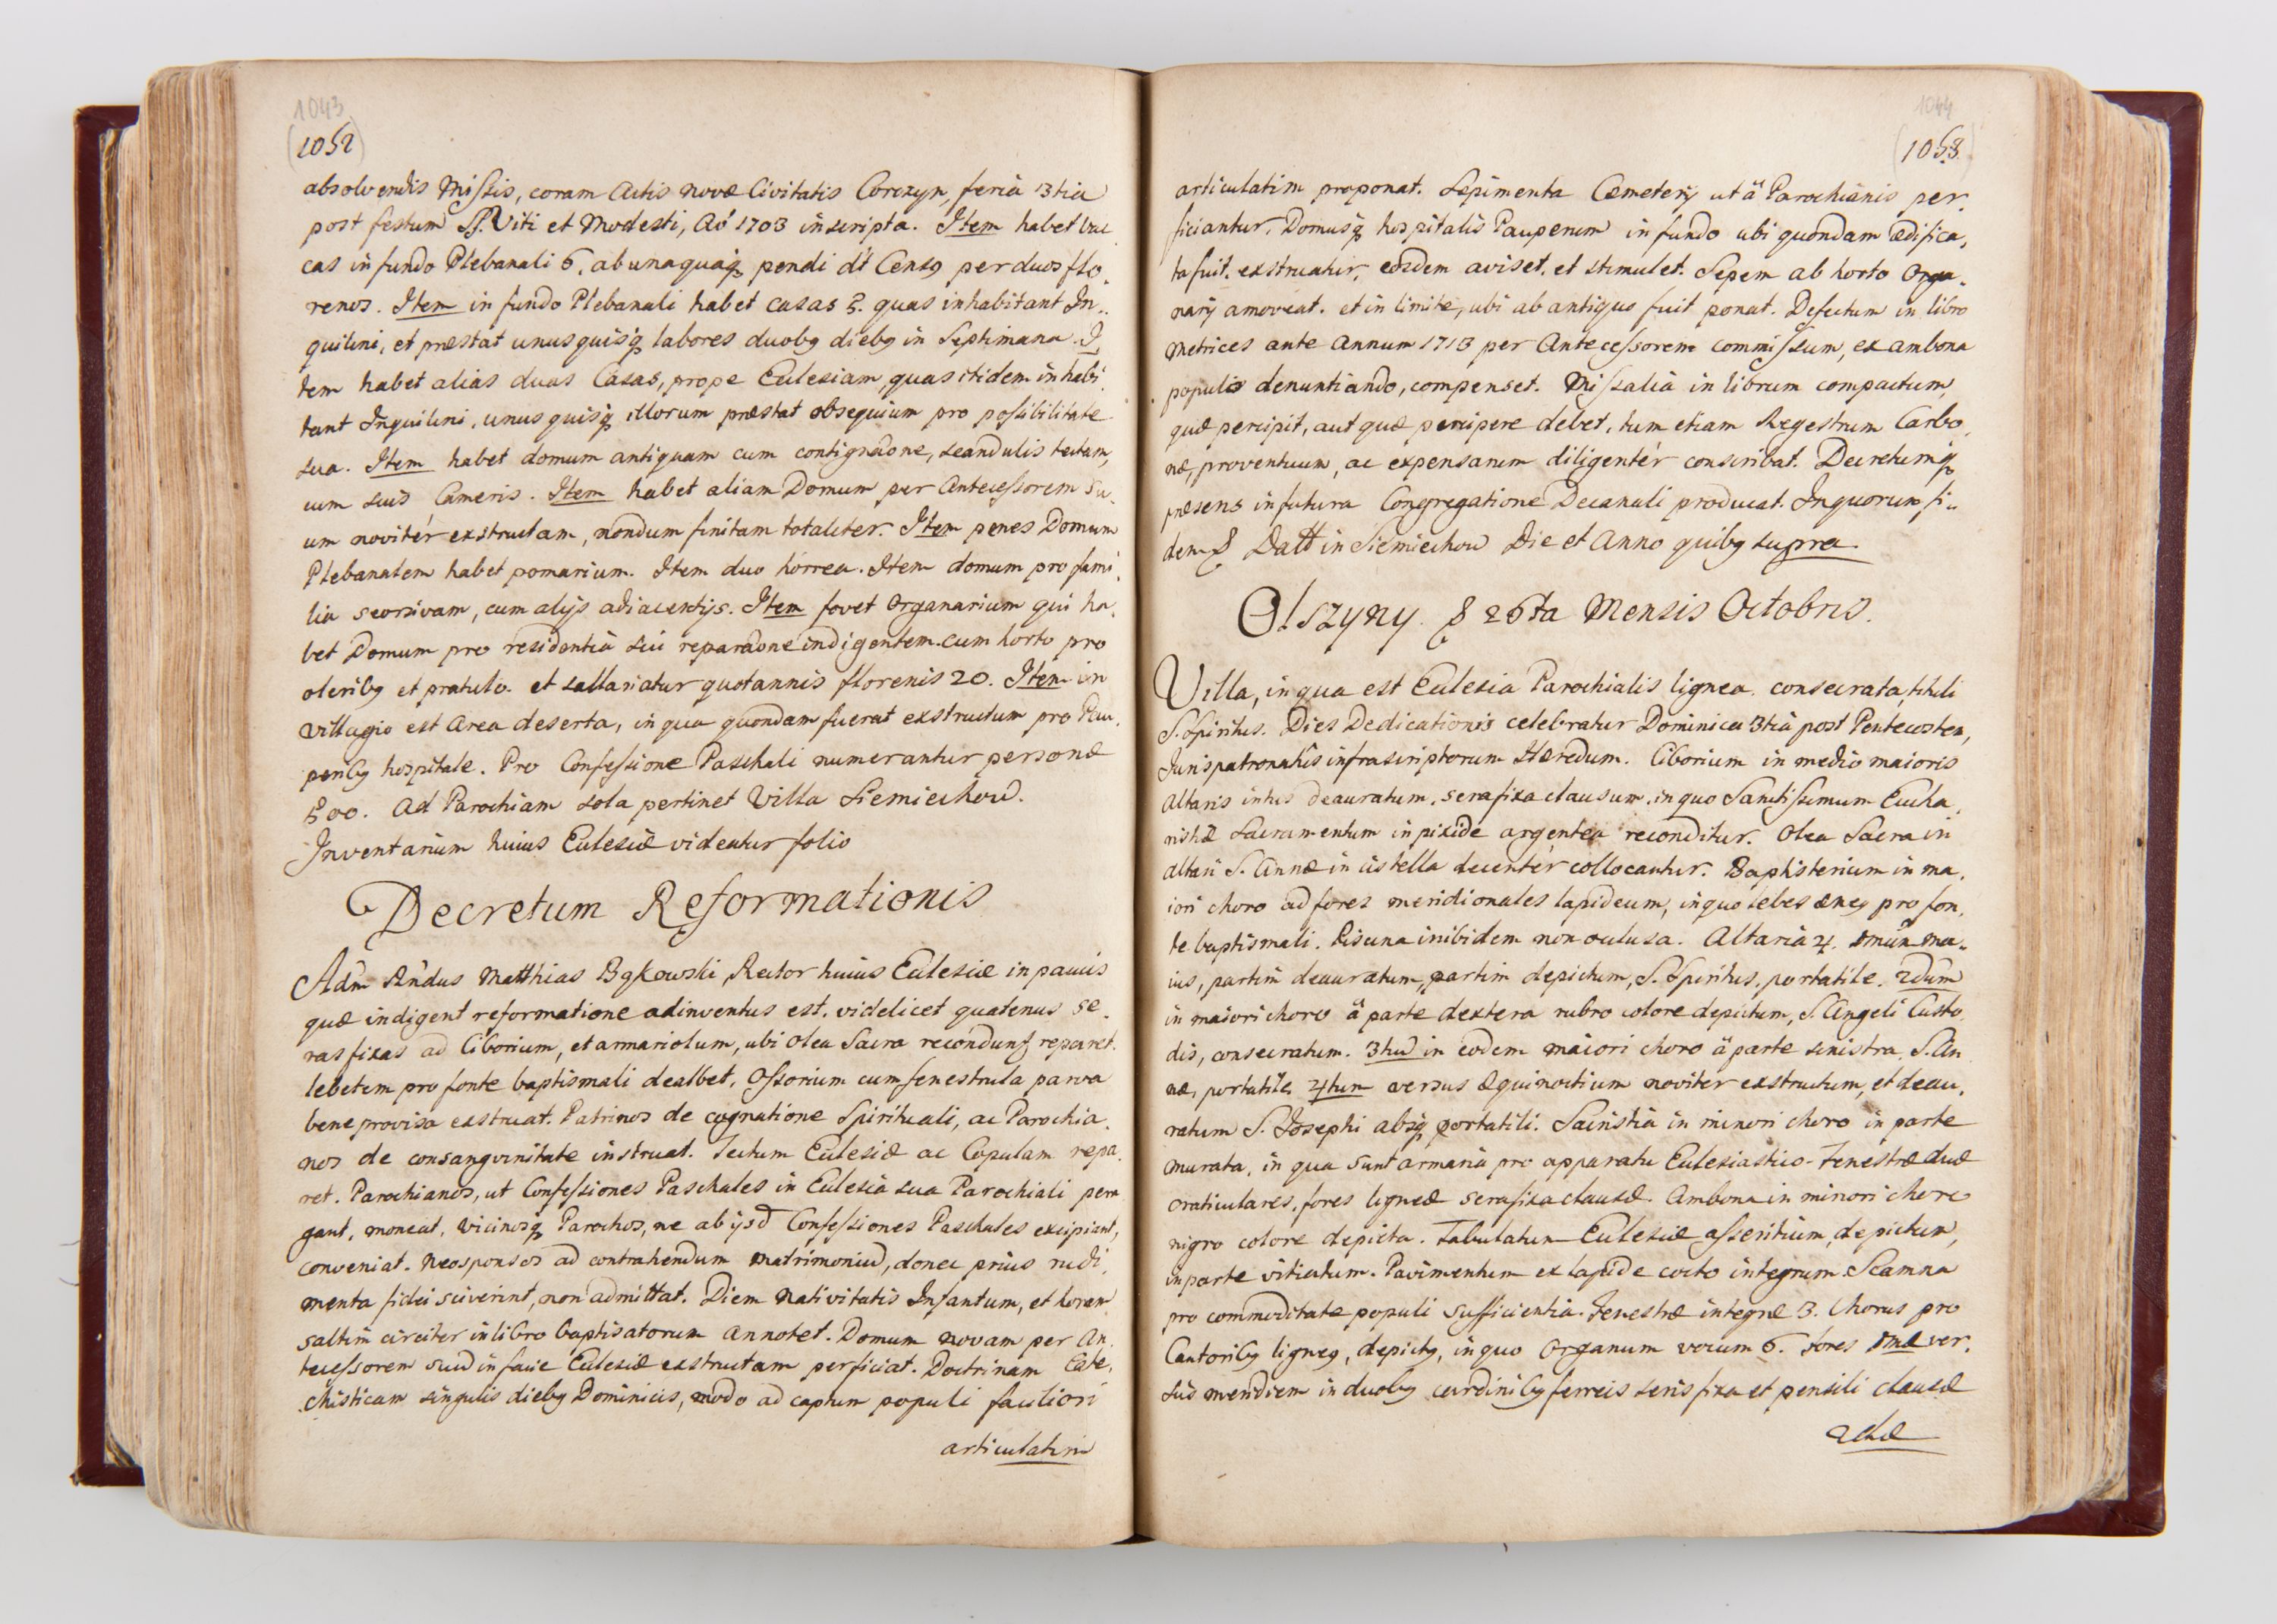 1043
(1052)
absolvendis Missis, coram Actis Novæ Civitatis Corczyn, feria 3tia
post festum SS. Viti et Modesti, Aô 1703 inscripta. Item habet vac„
cas in fundo Plebanali 6, ab unaquaq; pendi dt Censq per duos flo„
renos. Item in fundo Plebanali habet casas 5. quas inhabitant In„
quilini, et præstat unusquisq; labores duobq diebq in Septimana. I„
tem habet alias duas Casas, prope Ecclesiam, quas itidem inhabi„
tant Inquilini, unusquisq; illorum præstat obsequium pro possibilitate
sua. Item habet domum antiquam cum contignãone, scandulis tectam,
cum suis Cameris. Item habet aliam Domum per Antecessorem su„
um novitér exstructam, nondum finitam totaliter. Item penes Domum
Plebanalem habet pomarium. Item duo horrea. Item domum pro fami„
lia seorsivam, cum alijs adiacentijs. Item fovet Organarium qui ha„
bet Domum pro residentia sui reparãone indigentem. cum horto pro
oleribq et pratulo. et sallariatur quotannis florenis 20. Item in
villagio est Area deserta, in qua quondam fuerat exstructum pro Pau„
peribq hospitale. Pro Confessione Paschali numerantur personæ
500. Ad Parochiam sola pertinet Villa Siemiechow.
Inventarium huius Ecclesiæ videatur folio
Decretum Reformationis
Adm Rñdus Matthias Bykowski, Rector huius Ecclesiæ in paucis
quæ indigent reformatione adinventus est. videlicet quatenus se„
ras fixas ad Ciborium, et armariolum, ubi Olea Sacra recondunt reparet.
lebetem pro fonte baptismali dealbet, Ossorium cum fenestrula parva
bene provisa exstruat. Patrinos de cognatione Spirituali, ac Parochia„
nos de consangvinitate instruat. Tectum Ecclesiæ ac Copulam repa„
ret. Parochianos, ut Confessiones Paschales in Ecclesia sua Parochiali pera
gant, moneat, vicinosq; Parochos, ne ab ijsd Confessiones Paschales excipiant,
conveniat. Neosponsos ad contrahendum matrimoniũ, donec prius rudi„
menta fidei sciverint, non admittat. Diem Nativitatis Infantum, et horam
saltim circiter in libro baptisatorum annotet. Domum novam per An„
tecessorem suũ in facie Ecclesiæ exstructam perficiat. Doctrinam Cate„
chisticam singulis diebq Dominicis, modo ad captum populi faciliori
articulatim
1044
(1053)
articulatim proponat. Sepimenta Cæmeterij ut â Parochianis per„
ficiantur. Domusq; hospitalis Pauperum in fundo ubi quondam ædifica„
ta fuit. exstruatur, eosdem aviset. et stimulet. Sepem ab horto Orga„
narij amoveat. et in limite, ubi ab antiquo fuit ponat. Defectum in libro
Metrices ante Annum 1713 per Antecessorem commissum, ex ambona
populo denuntiando, compenset. Missalia in librum compactum,
quæ percipit, aut quæ percipere debet, tum etiam Regestrum Carbo„
næ, proventuum, ac expensarum diligentér conscribat. Decretumq;
præsens in futura Congregatione Decanali producat. In quorum fi„
dem &. Datt in Siemiechow Die et Anno quibq supra.
Olszyny. & 26ta Mensis Octobris.
Villa, in qua est Ecclesia Parochialis lignea. consecrata, tituli
S. Spiritus. Dies Dedicationis celebratur Dominica 3tia post Pentecosten,
Jurispatronatûs infrascriptorum Hæredum. Ciborium in medio maioris
Altaris intus deauratum, sera fixa clausum, in quo Sanctissimum Eucha„
ristiæ Sacramentum in pixide argentea reconditur. Olea Sacra in
altari S. Annæ in cistella decentér collocantur. Baptisterium in ma„
iori choro ad fores meridionales lapideum, in quo lebes æneq pro fon„
te baptismali. Piscina inibidem non oclusa. Altaria 4. 1mum ma„
ius, partim deauratum, partim depictum, S. Spiritus, portatile. 2dum
in maiori choro â parte dextera rubro colore depictum, S. Angeli Custo„
dis, consecratum. 3tiũ in eodem maiori choro â parte sinistra, S. An
næ, portatile. 4tum versus Æquinoctium noviter exstructum, et deau„
ratum S. Josephi absq; portatili. Sacristia in minori choro in parte
murata, in qua sunt armaria pro apparatu Ecclesiastico. Fenestræ duæ
craticulares, fores ligneæ sera fixa clausæ. Ambona in minori choro
nigro colore depicta. Tabulatum Ecclesiæ asseritium, depictum,
in parte vitiatum. Pavimentum ex lapide cocto integrum. Scamna
pro commoditate populi sufficientia. Fenestræ integræ 3. Chorus pro
Cantoribq ligneq, depictq, in quo Organum vocum 6. fores 1mæ ver„
sus meridiem in duobq cardinibq ferreis seris fixa et pensili clausæ
2dæ